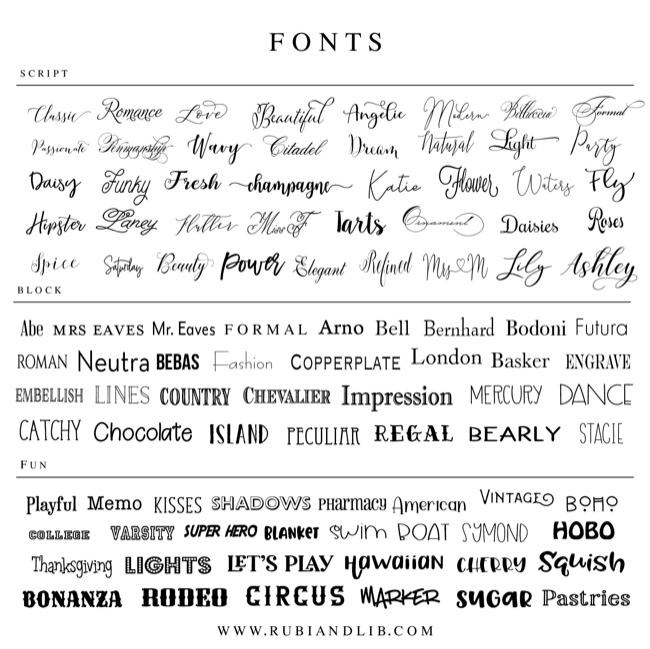 FONTS
SCRIPT
Classic Romance Love Beautiful Angelic Modern Bellucia Formal
Passionate Penmanship Wavy Citadel Dream Natural Light Party
Daisy Funky Fresh champagne Katie Flower Waters Fly
Hipster Laney Flutter Mine Tarts Ornament Daisies Roses
Spice Saturday Beauty Power Elegant Refined Mrs M Lily Ashley
BLOCK
Abe MRS EAVES Mr. Eaves FORMAL Arno Bell Bernhard Bodoni Futura
ROMAN Neutra BEBAS Fashion COPPERPLATE London Basker ENGRAVE
EMBELLISH LINES COUNTRY CHEVALIER Impression MERCURY DANCE
CATCHY Chocolate ISLAND PECULIAR REGAL BEARLY STACIE
FUN
Playful Memo KISSES SHADOWS PHarmacy American VINTAGED BOHO
COLLEGE VARSITY SUPER HERO BLANKET SWIM BOAT SYMOND HOBO
Thanksgiving LIGHTS LET'S PLAY Hawaiian CHERRY Squish
BONANZA RODEO CIRCUS MARKER SUGAR Pastries
WWW.RUBIANDLIB.COM